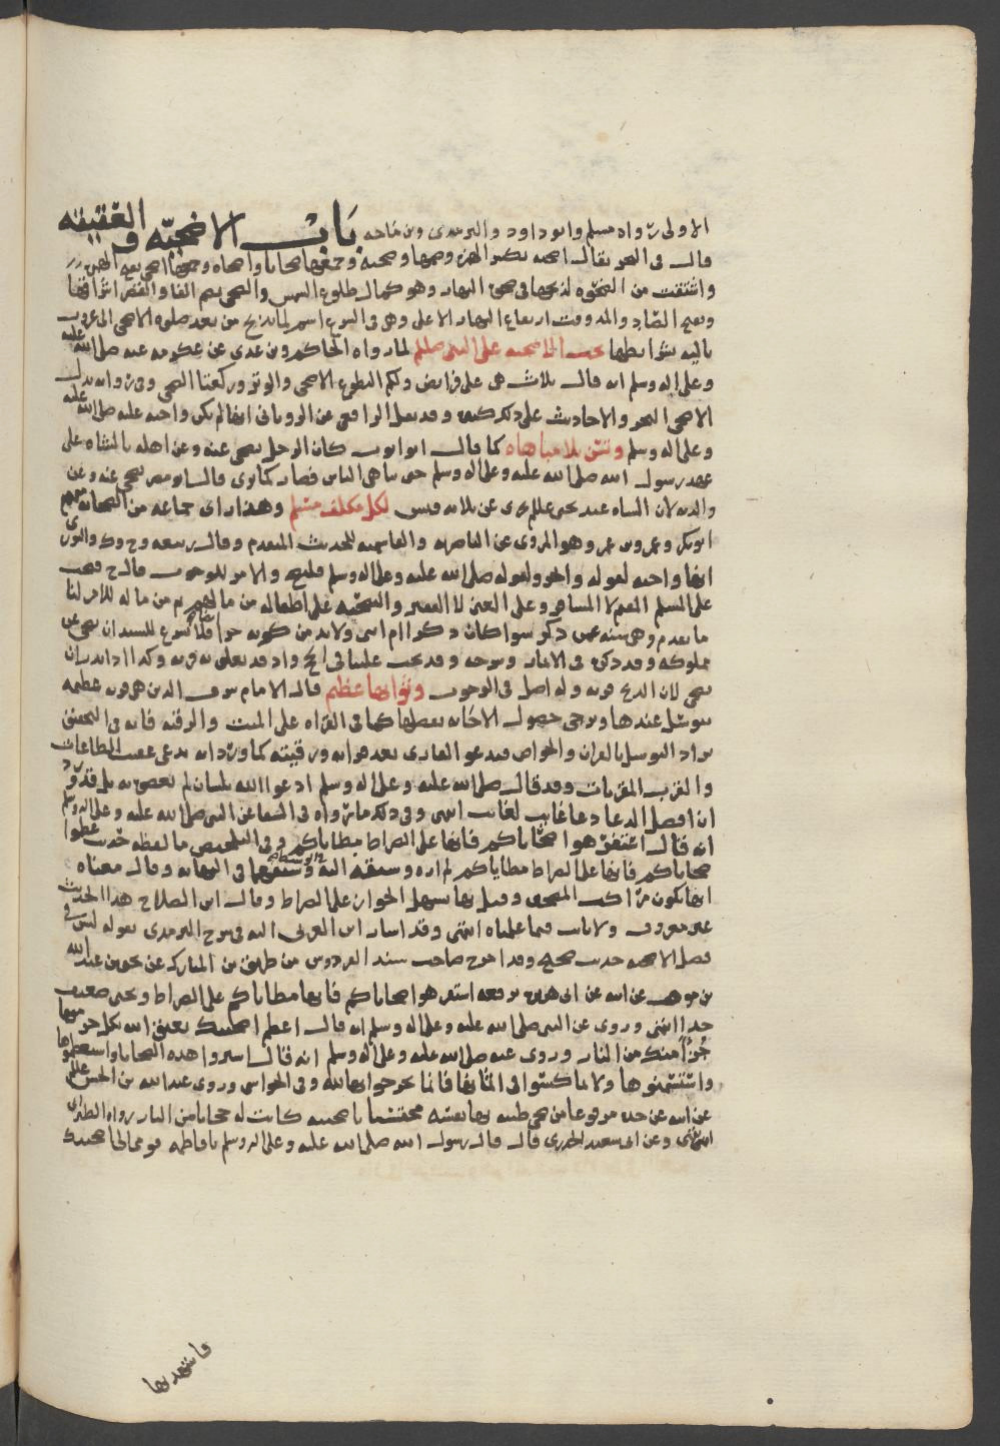 الاولى رواه مسلم وابو داود والترمذى وبن ماجه باب الاضحيّه والعقيقه
قال فى البحر يقال اضحيه بكسر الهمزه وضمها وضحيه وجمعها ضحايا واضحاه وجمعها اضحى بفتح الهمزه
واشتقت من الضحوه لذبحها فى ضحى النهار وهو كمال طلوع الشمس والضحى بضم الفا والقصر اشراقها
وبفتح الضاد والمد وقت ارتفاع النهار الاعلى وهى فى الشرع اسم لما يذبح من بعد صلوه الاضحى الى غروب
ثالثه بشرايطها تجب الاضحيه على النبى صللم لما رواه الحاكم وبن عدى عن عكرمه عنه صلى الله عليه
وعلى اله وسلم انه قال ثلاث هى على فرايض ولكم تطوع الاضحى والوتر وركعتا الضحى وفى روايه بدل
الاضحى النحر والاحاديث على ذلك كثيره وقد نقل الرافعى عن الرويانى انها لم يكن واجبه عليه صلى الله عليه
وعلى اله وسلم وتسن بلا مباهاه كما قال ابو ايوب كان الرجل يضحى عنه وعن اهله بالشاه على
عهد رسول الله صلى الله عليه وعلى اله وسلم حتى تباهى الناس فصار كما ترى قال ابو مضر يضحى عنه وعن
والديه لان الشاه عند يحيى عللم تجزى عن ثلاثه وليس لكل مكلف مسلم وهذا راى جماعه من الصحابه منهم
ابو بكر وعمر وبن عمر وهو المروى عن الناصريه والقاسميه للحديث المتقدم وقال ربيعه وح وك والثورى
انها واجبه لقوله وانحر ولقوله صلى الله عليه وعلى اله وسلم فليذبح والامر للوجوب قال ح فتجب
على المسلم المقيم لا المسافر وعلى الغنى لا الفقير والتضحيه على اطفاله من مالهم ثم من ماله للامر لنا
ما تقدم وهى سنه عين ذكر سوا كان ذكرا ام انثى ولا بد من كونه حرا فلا يسوغ للسيد ان يضحى عن
مملوكه وقد ذكره فى الاثمار وشرحه وقد تجب علينا فى الحج واذ قد تعلق به قربه وكذا اذا نذر ان
يضحى لان الذبح قربه وله اصل فى الوجوب وثوابها عظيم قال الامام شرف الدين هى قربه عظيمه
يتوسل عندها ويرجى حصول الاجابه بفضلها كما فى القراه على الميت والرقيه فانه فى التحقيق
يراد التوسل بالقران والخواص فيدعو القارى بعد قرانه ورقيته كما ورد انه يدعى عقيب الطاعات
والقرب المقربات وقد قال صلى الله عليه وعلى اله وسلم ادعوا الله بلسان لم تعصوه به بل قد ورد
ان افضل الدعا دعا غايب لغايب انتهى وفى ذلك ما رواه فى الشفا عن النبى صلى الله عليه وعلى اله وسلم
انه قال استفرهوا ضحاياكم فانها على الصراط مطاياكم وفى التلخيص ما لفظه حديث عظموا
ضحاياكم فانها على الصراط مطاياكم لم اره وسبقه اليه فى الوسيط وسبقهما فى النهايه وقال معناه
انها تكون مراكب المضحين وقيل بها يسهل الجواز على الصراط وقال ابن الصلاح هذا الحديث
غير معروف ولا ثابت فيما علمناه انتهى وقد اشار ابن العربى اليه فى شرح الترمذى بقوله ليس فى
فضل الاضحيه حديث صحيح وقد اخرج صاحب مسند الفردوس من طريق بن المبارك عن يحيى بن عبد الله
بن موهب عن ابيه عن ابى هريره يرفعه استفرهوا ضحاياكم فانها مطاياكم على الصراط ويحيى ضعيف
جدا انتهى وروى عن النبى صلى الله عليه وعلى اله وسلم انه قال اعظم اضحيتك يعتق الله بكل جزء منها
جُزءًا منك من النار وروى عنه صلى الله عليه وعلى اله وسلم انه قال اسروا هذه الضحايا واستعظموها
واستسمنوها ولا تماكسوا فى اثمانها فانما تخرجوا بها لله وفى الخواسى وروى عبد الله بن الحسن عللم
عن ابيه عن جده مرفوعا من ضحى طيبه بها نفسه محتسبا باضحيته كانت له حجابا من النار رواه الطبرانى
انتهى وعن ابى سعيد الخدرى قال قال رسول الله صلى الله عليه وعلى اله وسلم يا فاطمه قومى الى اضحيتك
فاشهديها